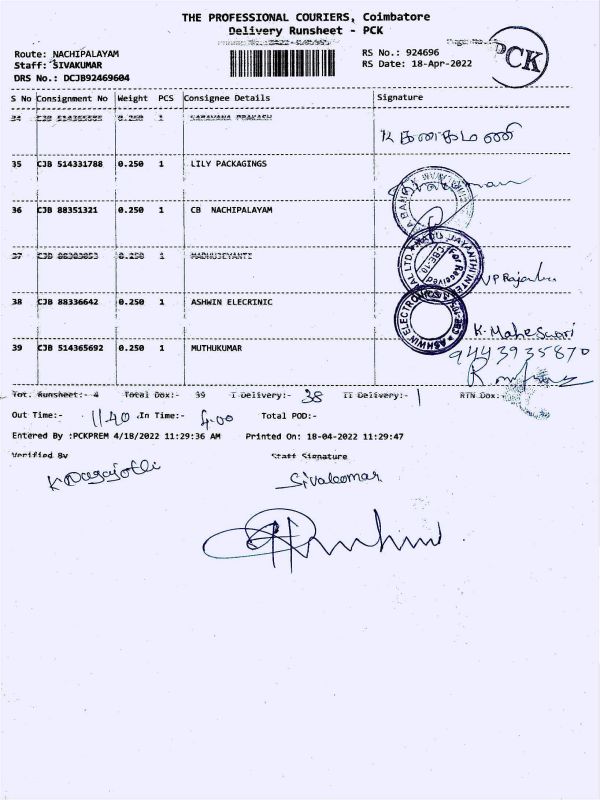 THE PROFESSIONAL COURIERS, Coimbatore
Delivery Runsheet - PCK
PCK
Route: NACHIPALAYAM
RS No.: 924696
Staff: SIVAKUMAR
RS Date: 18-Apr-2022
DRS No.: DCJB92469604
S No Consignment No Weight PCS Consignee Details Signature
34 0.250 1 SARAVANA PRAKASH
கனகமணி
35 CJB 514331788 0.250 1 LILY PACKAGINGS
36 CJB 88351321 0.250 1 CB NACHIPALAYAM
37 0.250 1 MADHUJEYANTI
For Received
38 CJB 88336642 0.250 1 ASHWIN ELECRINIC
ASHWIN ELECTRONICS
K. Maheswari
9443935870
39 CJB 514365692 0.250 1 MUTHUKUMAR
Tot. Runsheet:- 4 Total Dox:- 39 I Delivery:- 38 II Delivery:- 1 RTN Dox:-
Out Time:- 1140 In Time:- 4.00 Total POD:-
Entered By :PCKPREM 4/18/2022 11:29:36 AM Printed On: 18-04-2022 11:29:47
Verified By Staff Signature
Sivakumar